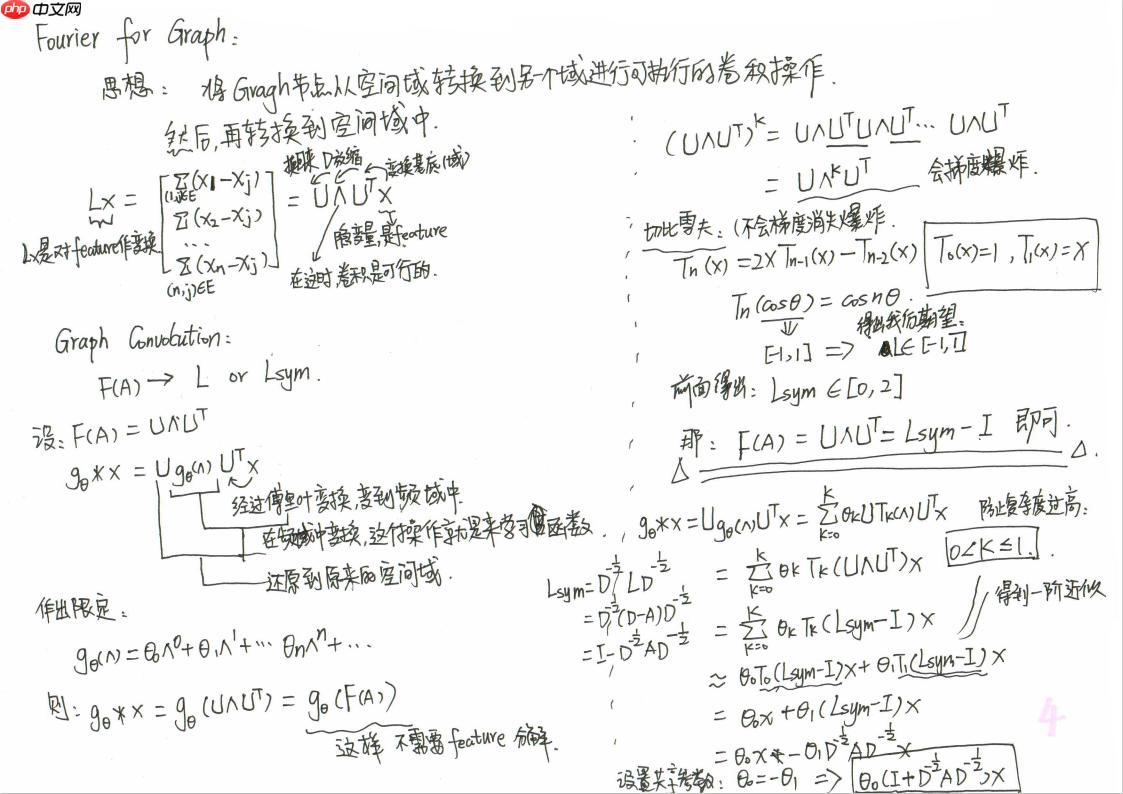 php 中文网
Fourier for Graph:
思想: 将Gragh节点从空间域转换到另一个域进行可执行的卷积操作.
然后,再转换到空间域中.
Lx = [ Σ(x1-xj) (1,j)∈E
Σ(x2-xj)
...
Σ(xn-xj) (n,j)∈E ] = UΛU^T x
Lx是对feature作变换
放缩
变换基底(域)
变量,是feature
在这时,卷积是可行的.
Graph Convolution:
F(A) → L or Lsym.
设: F(A) = UΛU^T
gθ*x = U gθ(Λ) U^T x
经过傅里叶变换,变到频域中.
在频域中变换,这个操作就是来学习函数
还原到原来的空间域.
作出限定:
gθ(Λ) = θ0Λ^0 + θ1Λ^1 + ... θnΛ^n + ...
则: gθ*x = gθ(UΛU^T) = gθ(F(A))
这样 不需要feature 分解.
(UΛU^T)^K = UΛU^TUΛU^T... UΛU^T
= UΛ^K U^T 会梯度爆炸.
切比雪夫: (不会梯度消失爆炸.
Tn(x) = 2x Tn-1(x) - Tn-2(x) T0(x)=1, T1(x)=x
Tn(cosθ) = cosnθ.
⇓ 得出我们期望:
[-1,1] => L∈[-1,1]
前面得出: Lsym ∈ [0,2]
那: F(A) = UΛU^T = Lsym - I 即可.
gθ*x = U gθ(Λ) U^T x = Σ_{K=0}^{K} θk U Tk(Λ) U^T x 防止复杂度过高:
= Σ_{K=0}^{K} θk Tk(UΛU^T) x 0<K≤1.
= Σ_{K=0}^{K} θk Tk(Lsym-I) x 得到一阶近似
≈ θ0T0(Lsym-I)x + θ1T1(Lsym-I)x
= θ0x + θ1(Lsym-I)x
= θ0x - θ1D^{-1/2}AD^{-1/2}x
Lsym = D^{-1/2}LD^{-1/2}
= D^{-1/2}(D-A)D^{-1/2}
= I - D^{-1/2}AD^{-1/2}
设置共享参数: θ0=-θ1 => θ0(I+D^{-1/2}AD^{-1/2})x
4